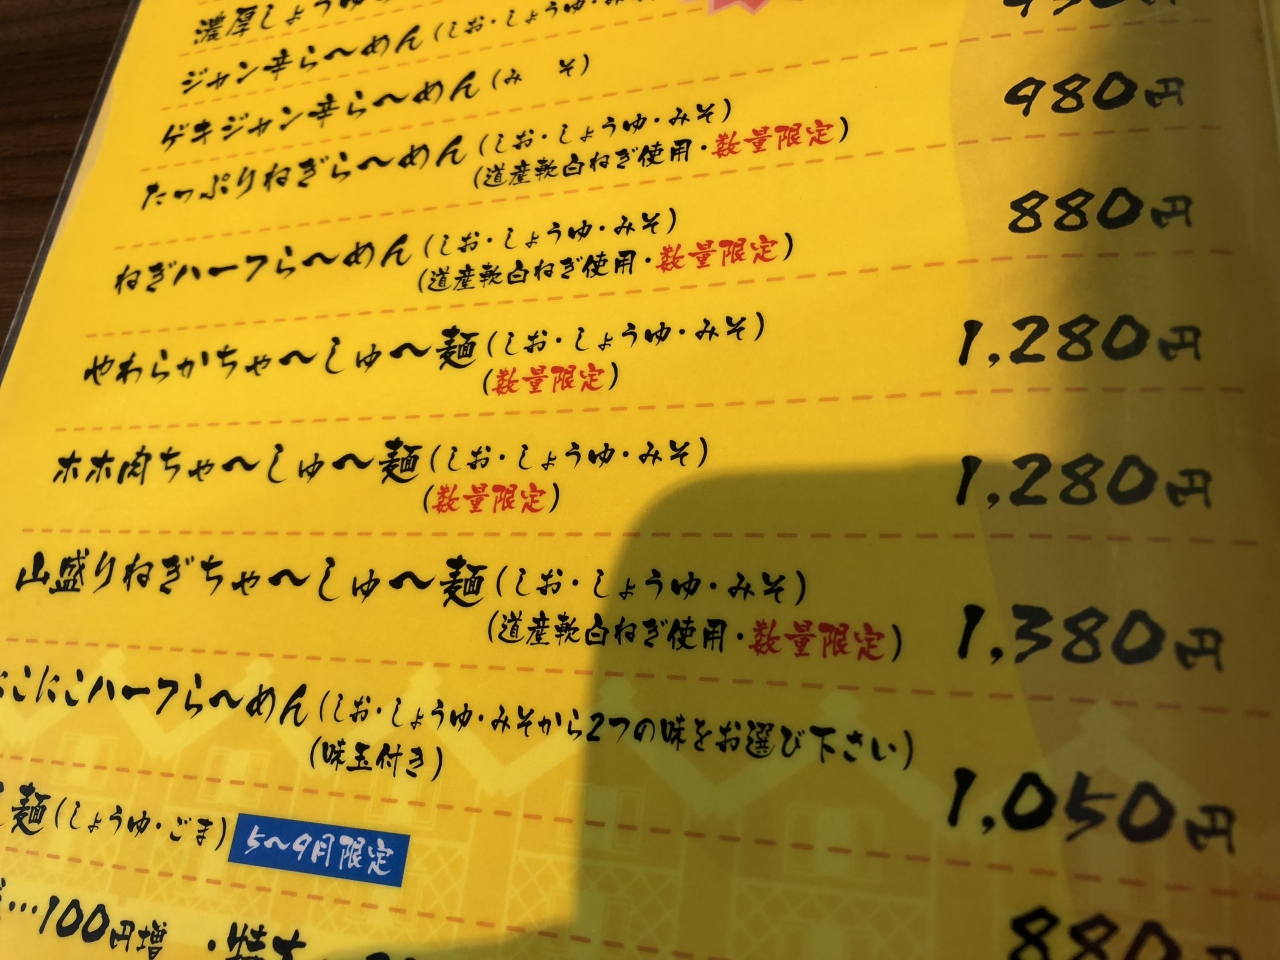 濃厚しょうゆ
ジャン辛ら〜めん(しお・しょうゆ・み
ゲキジャン辛ら〜めん(みそ)
980円
たっぷりねぎら〜めん(しお・しょうゆ・みそ)
(道産軟白ねぎ使用・数量限定)
880円
ねぎハーフら〜めん(しお・しょうゆ・みそ)
(道産軟白ねぎ使用・数量限定)
1,280円
やわらかちゃ〜しゅ〜麺(しお・しょうゆ・みそ)
(数量限定)
1,280円
ホホ肉ちゃ〜しゅ〜麺(しお・しょうゆ・みそ)
(数量限定)
1,380円
山盛りねぎちゃ〜しゅ〜麺(しお・しょうゆ・みそ)
(道産軟白ねぎ使用・数量限定)
こにこハーフら〜めん(しお・しょうゆ・みそから2つの味をお選び下さい)
(味玉付き)
1,050円
麺(しょうゆ・ごま) 5〜9月限定
880
…100円増